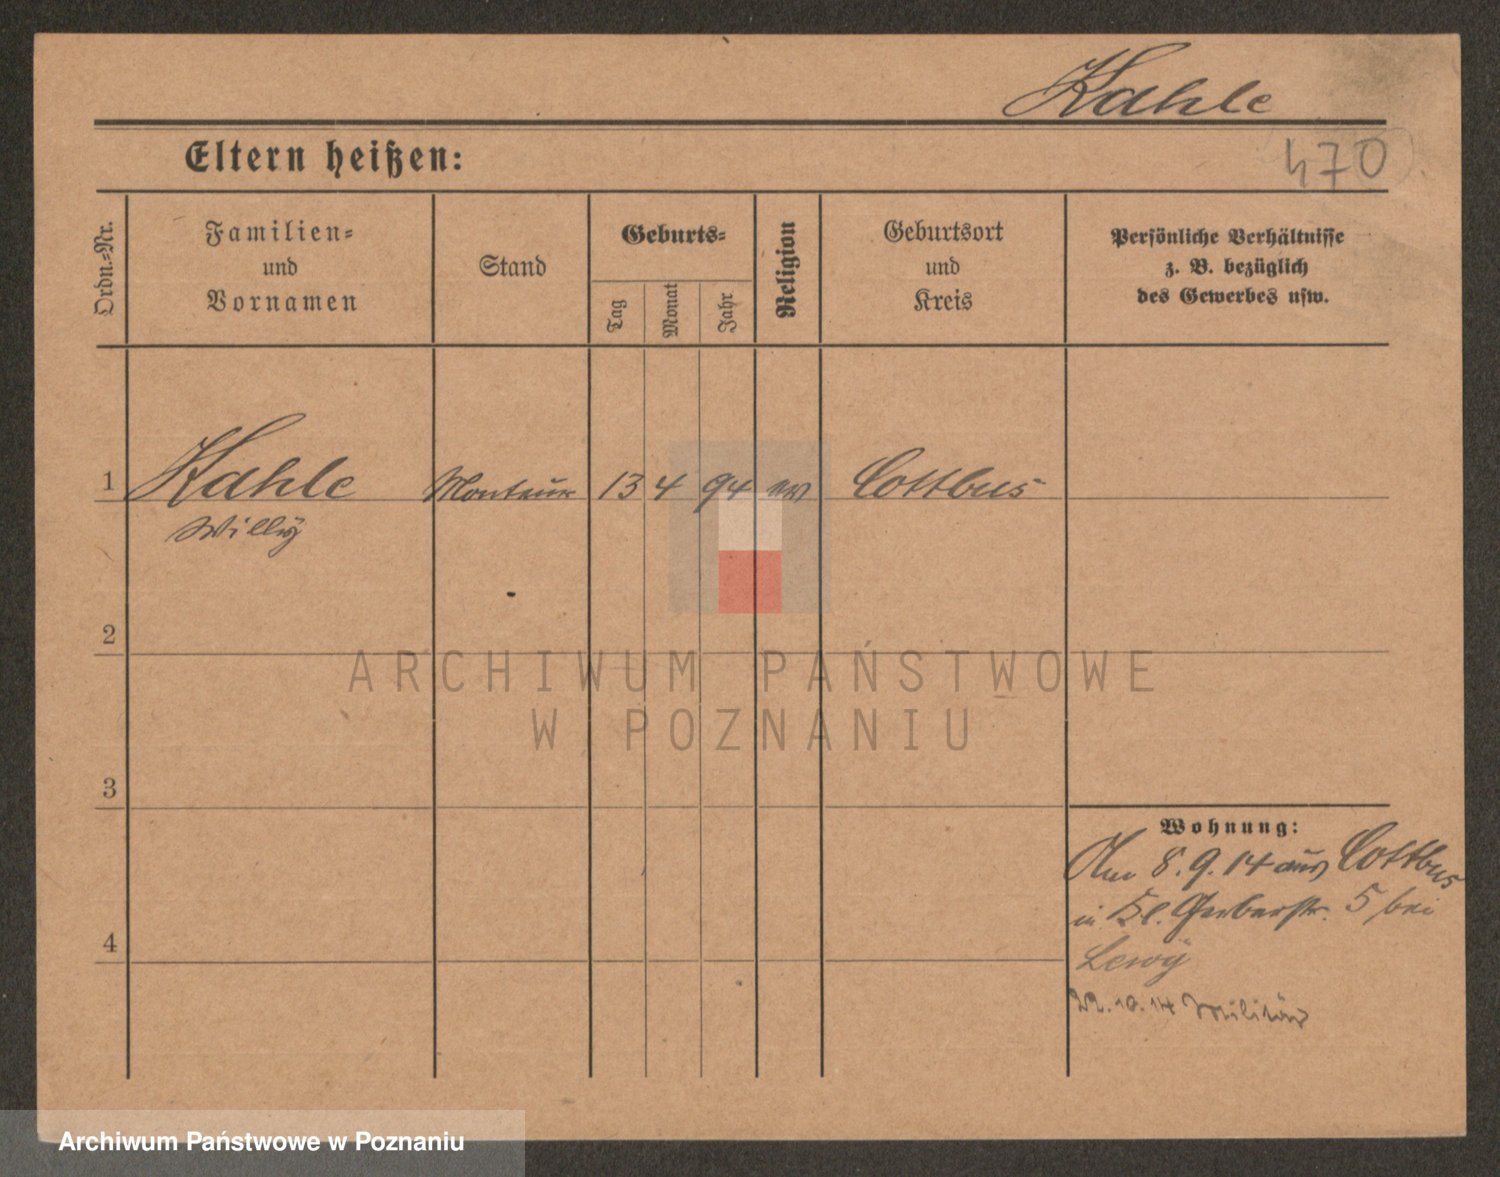 Kahle
470
Eltern heißen:
Ordn.=Nr.
Familien=
und
Vornamen
Stand
Geburts=
Tag
Monat
Jahr
Religion
Geburtsort
und
Kreis
Persönliche Verhältnisse
z. B. bezüglich
des Gewerbes usw.
1 Kahle Monteur 13 4 94 ev Cottbus
Willy
2
3
4
Wohnung:
Am 8.9.14 aus Cottbus
in Kl. Gerberstr. 5 bei
Lewy
22.10.14 Militär
ARCHIWUM PAŃSTWOWE
W POZNANIU
Archiwum Państwowe w Poznaniu